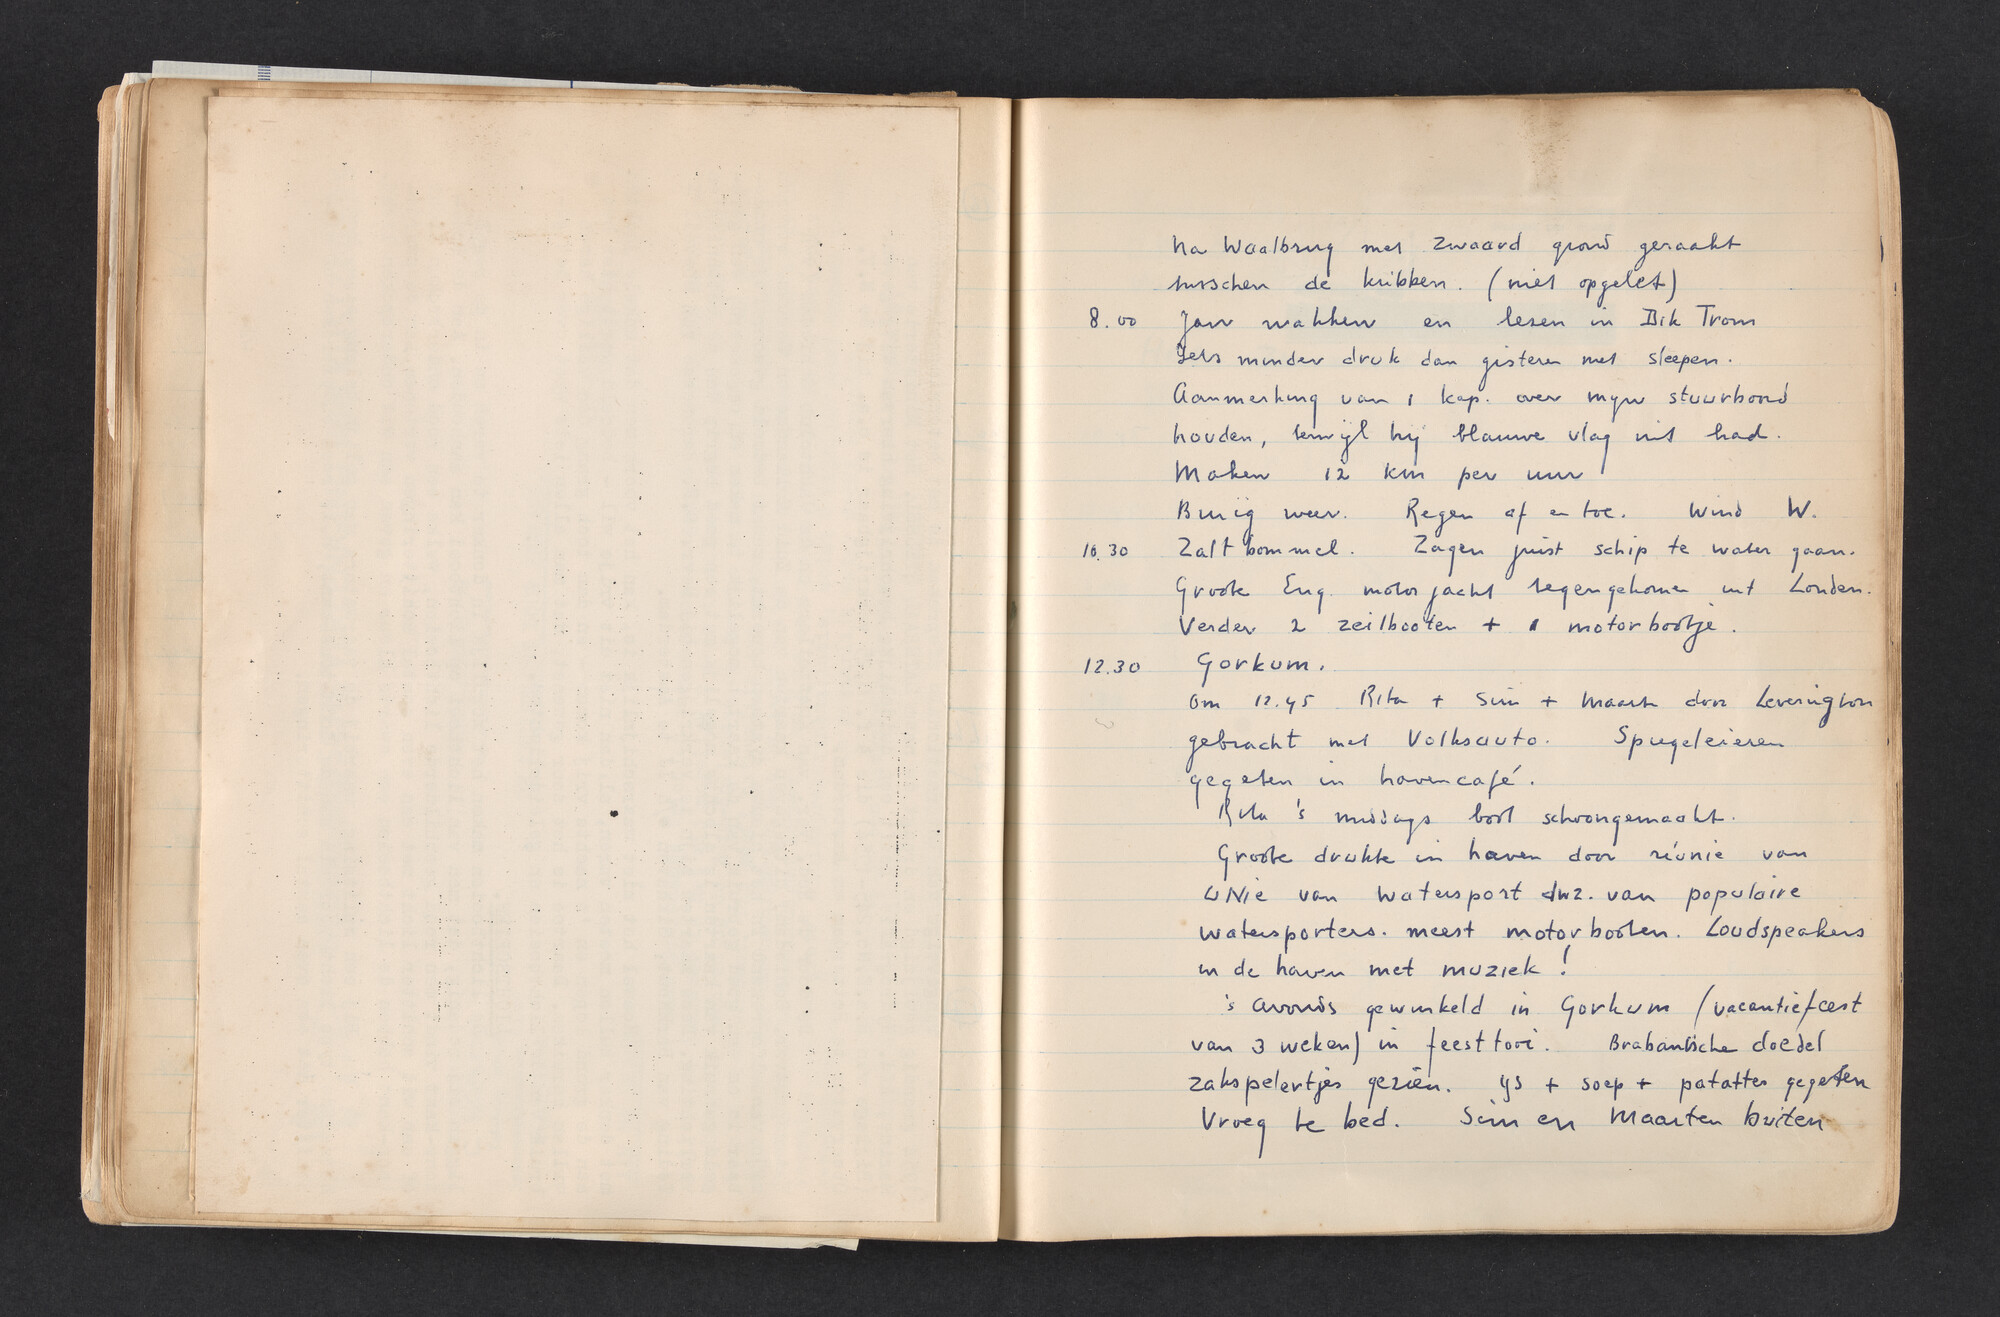 Na Waalbrug met zwaard grond geraakt
tusschen de kribben. (niet opgelet)
8.00 Jan wakker en lezen in Dik Trom
Iets minder druk dan gisteren met sleepen.
Aanmerking van 1 kap. over mijn stuurboord
houden, terwijl hij blauwe vlag uit had.
Maken 12 km per uur
Buiig weer. Regen af en toe. Wind W.
10.30 Zaltbommel. Zagen juist schip te water gaan.
Groote Eng. motorjacht tegengekomen uit Londen.
Verder 2 zeilbooten + 1 motorbootje.
12.30 Gorkum.
Om 12.45 Rita + Sim + Maart door Leverington
gebracht met Volksauto. Spiegeleieren
gegeten in havencafé.
Rita 's middags boot schoongemaakt.
Groote drukte in haven door réunie van
UNie van Watersport dwz. van populaire
watersporters. meest motorbooten. Loudspeakers
in de haven met muziek!
's avonds gewinkeld in Gorkum (vacantiefeest
van 3 weken) in feesttooi. Brabantsche doedel
zakspelertjes gezien. ijs + soep + patattes gegeten
Vroeg te bed. Sim en Maarten buiten